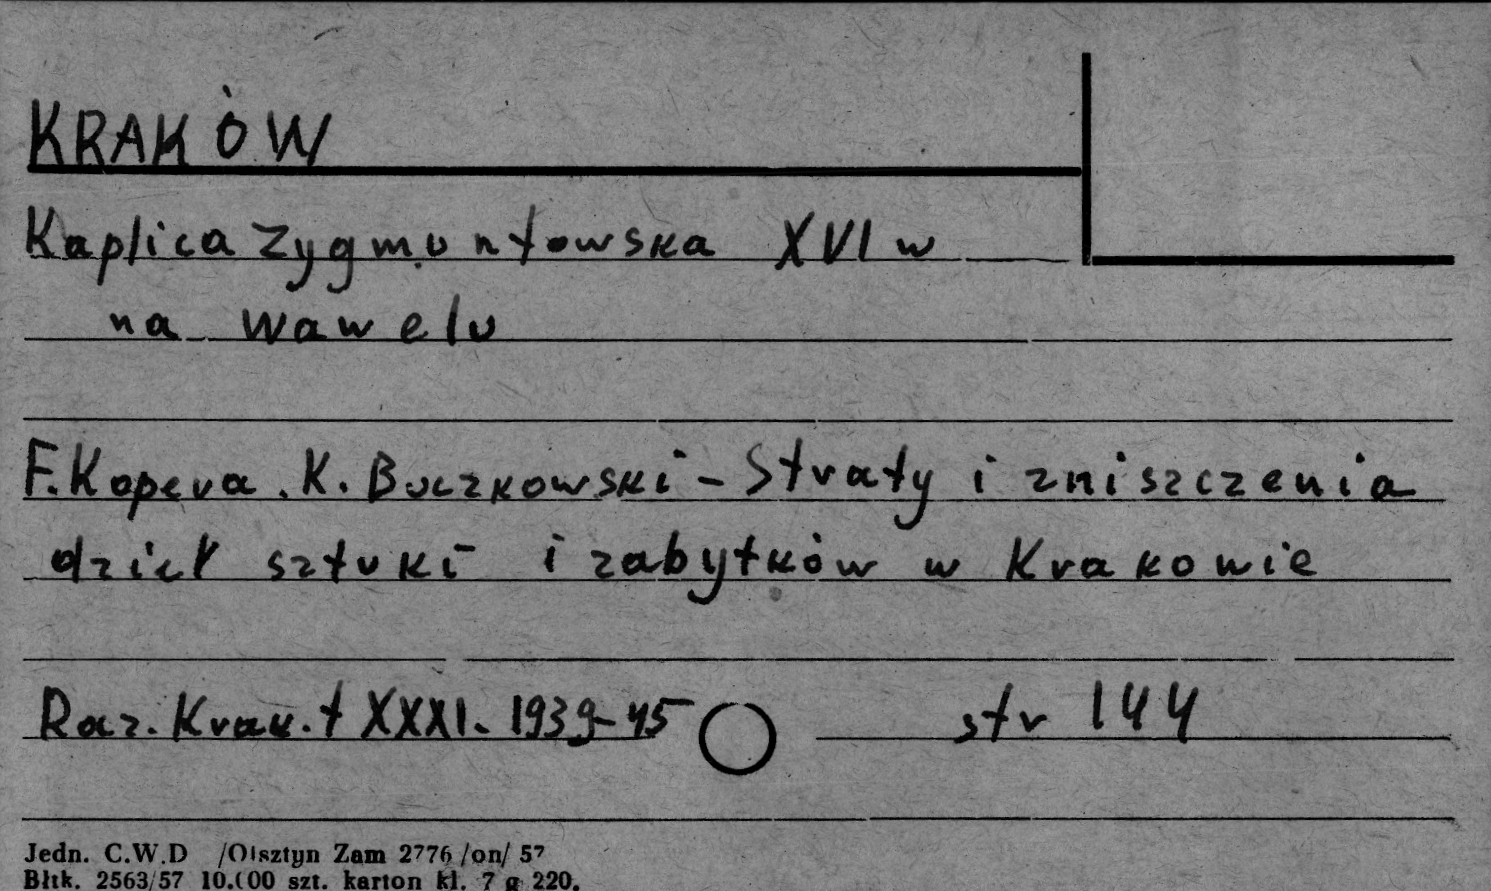 KRAKÓW
Kaplica Zygmuntowska XVI w
na Wawelu
F. Kopera. K. Buczkowski - Straty i zniszczenia
dzieł sztuki i zabytków w Krakowie
Rocz. Krak. t XXXI. 1939-45 str 144
Jedn. C.W.D /Olsztyn Zam 2776 /on/ 57
Błtk. 2563/57 10.000 szt. karton kl. 7 g 220.